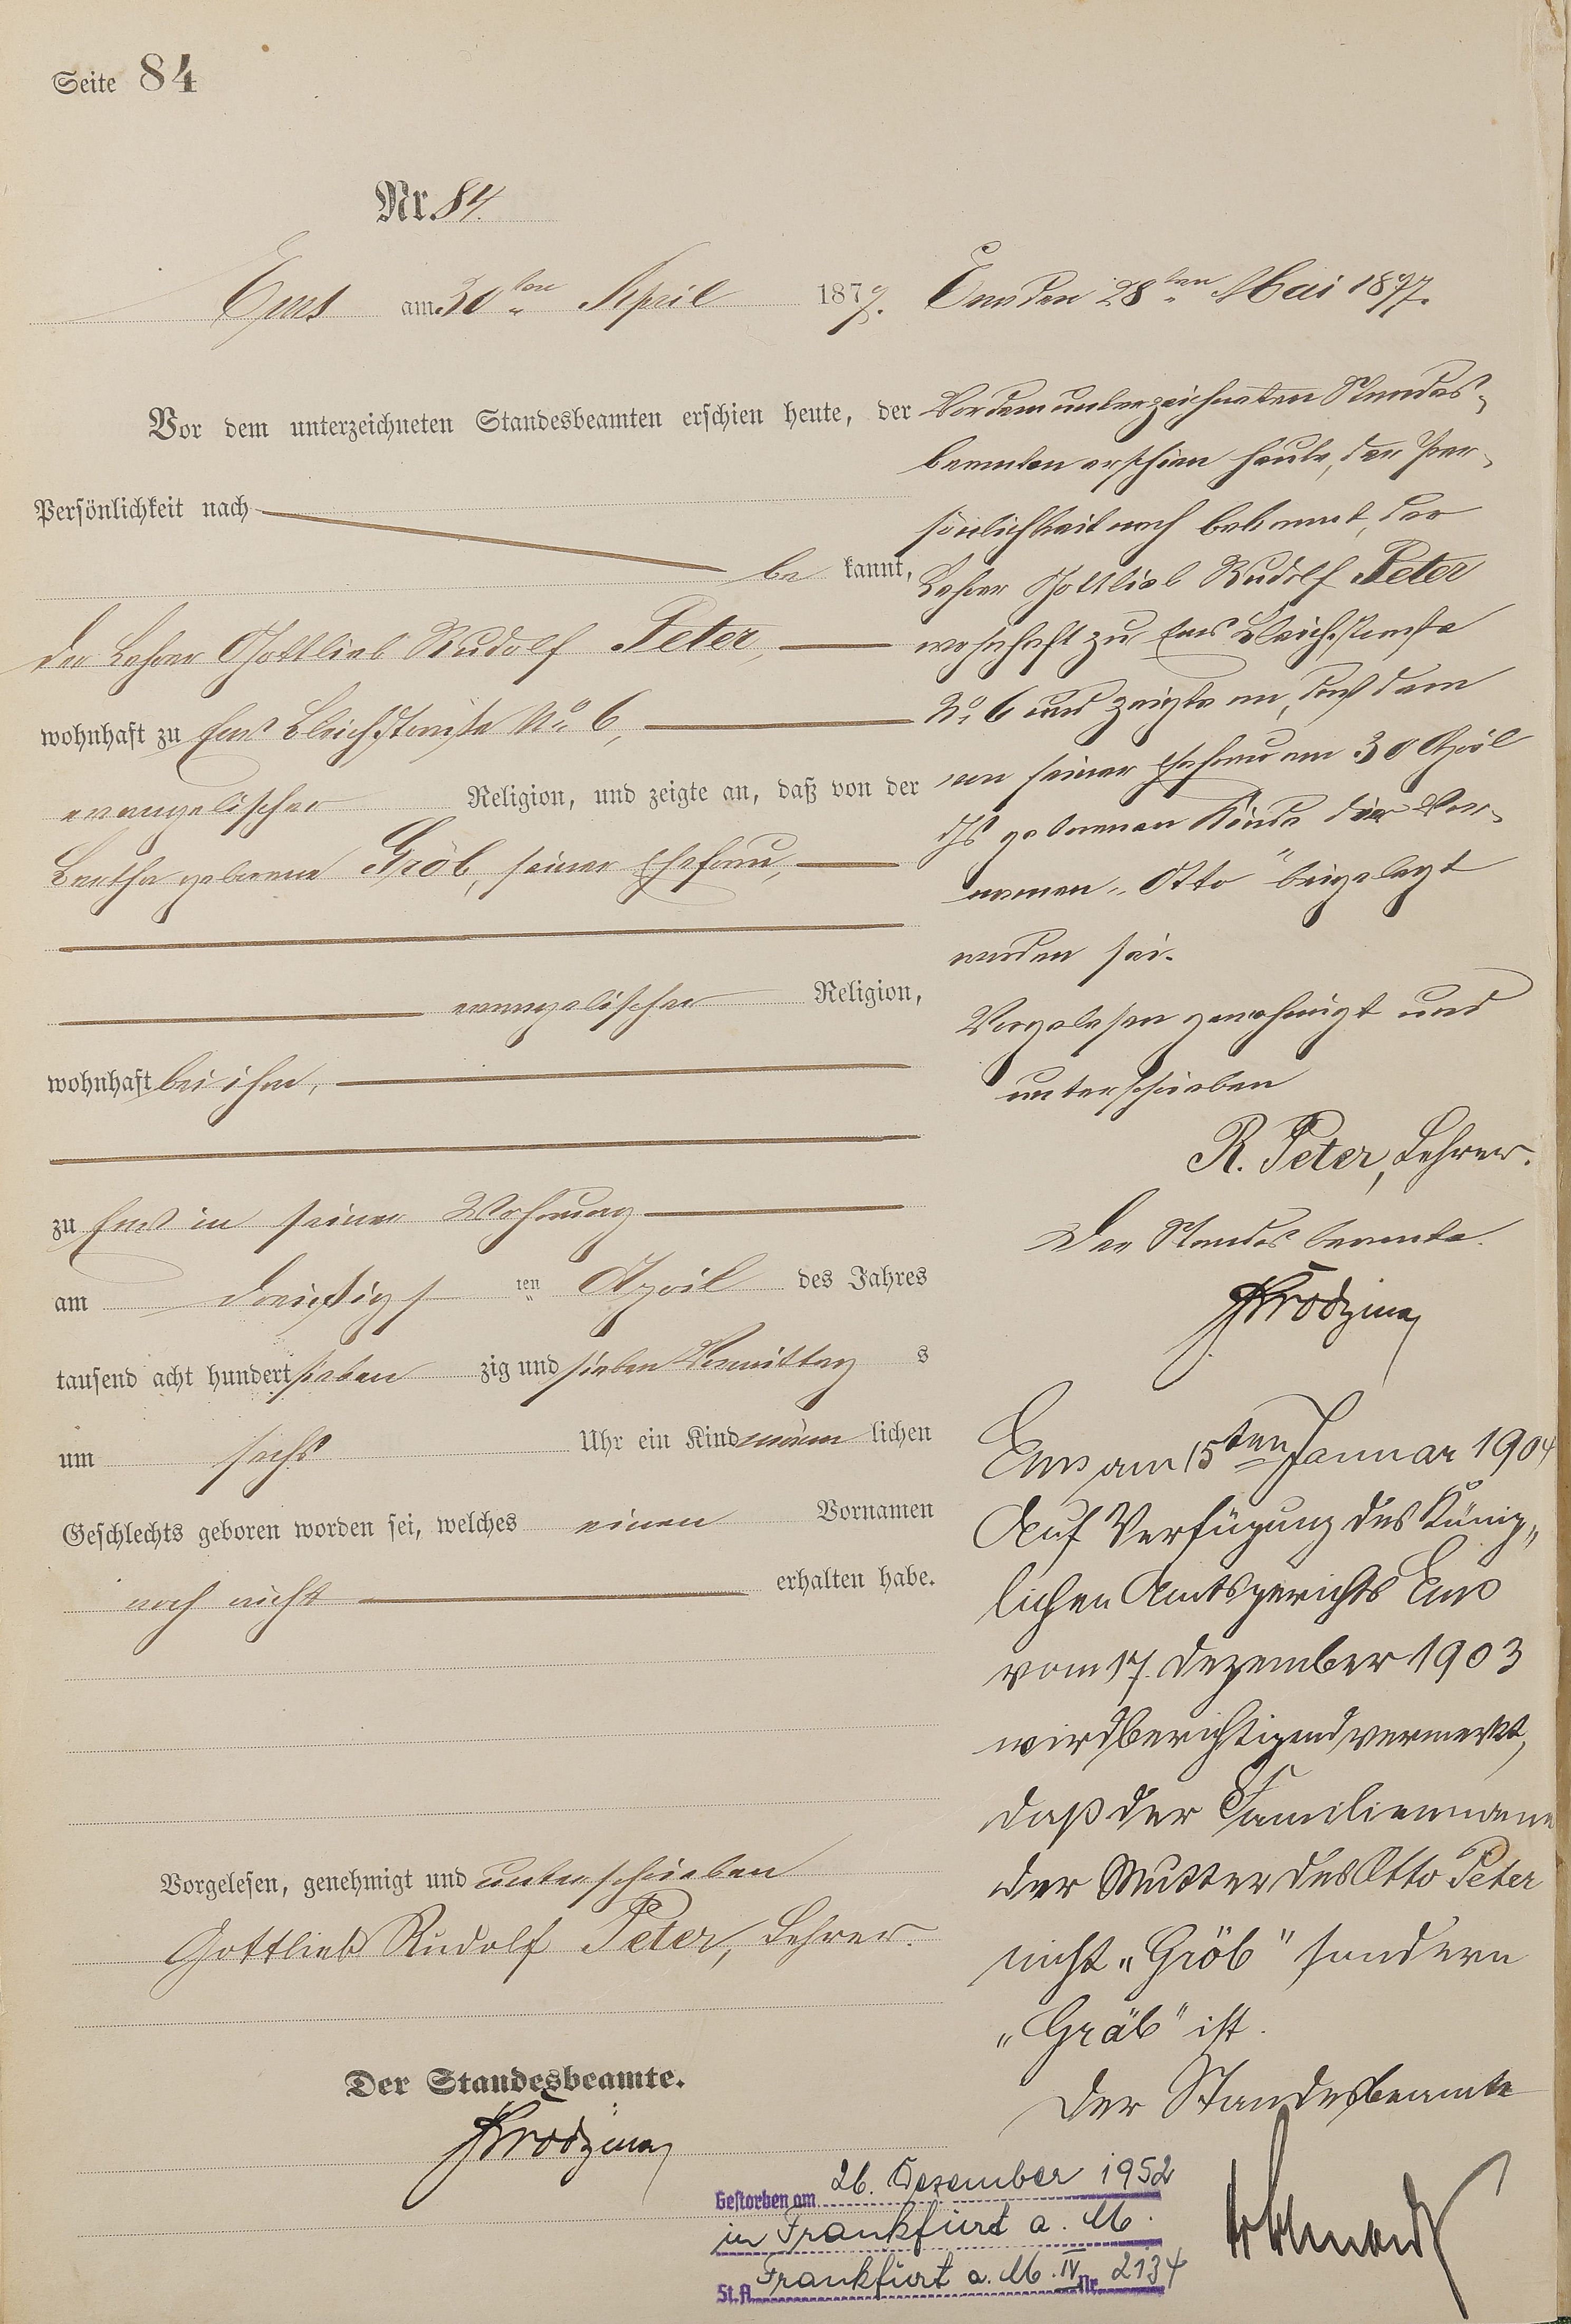 Seite 84
Nr. 84.
Ems am 30ten April 1877.
Vor dem unterzeichneten Standesbeamten erschien heute, der
Persönlichkeit nach
be kannt,
der Lehrer Gottlieb Rudolf Peter,
wohnhaft zu Ems Bleichstraße No. 6,
evangelischer Religion, und zeigte an, daß von der
Bertha geborene Gröb, seiner Ehefrau,
evangelischer Religion,
wohnhaft bei ihm,
zu Ems in seiner Wohnung
am dreißigs ten April des Jahres
tausend acht hundert sieben zig und sieben Vormittag s
um sechs Uhr ein Kind männ lichen
Geschlechts geboren worden sei, welches einen Vornamen
noch nicht erhalten habe.
Vorgelesen, genehmigt und unterschrieben
Gottlieb Rudolf Peter, Lehrer.
Der Standesbeamte.
Ems den 28ten Mai 1877.
Vor dem unterzeichneten Standes-
beamten erschien heute, der Per-
sönlichkeit nach bekannt, der
Lehrer Gottlieb Rudolf Peter
wohnhaft zu Ems Bleichstraße
No. 6 und zeigte an, daß dem
von seiner Ehefrau am 30 April
ds geborenen Kinde der Vor-
namen „Otto" beigelegt
worden sei.
Vorgelesen genehmigt und
unterschrieben
R. Peter, Lehrer.
Der Standesbeamte.
Ems am 15ten Januar 1904
Auf Verfügung des König-
lichen Amtsgerichts Ems
vom 17. Dezember 1903
wird berichtigend vermerkt,
daß der Familienname
der Mutter des Otto Peter
nicht „Gröb" sondern
„Gräb" ist.
Der Standesbeamte
Gestorben am 26. Dezember 1952
in Frankfurt a. M.
St.A. Frankfurt a. M. IV Nr. 2134